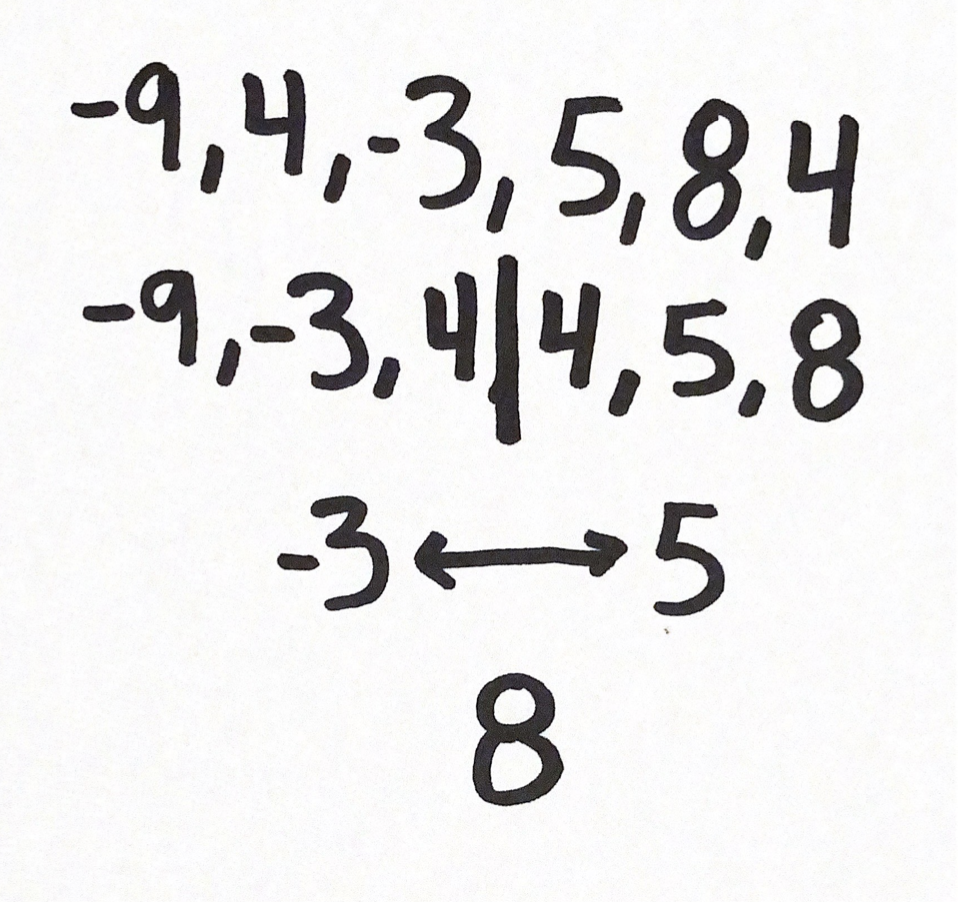 -9, 4, -3, 5, 8, 4
-9, -3, 4 | 4, 5, 8
-3 ↔ 5
8